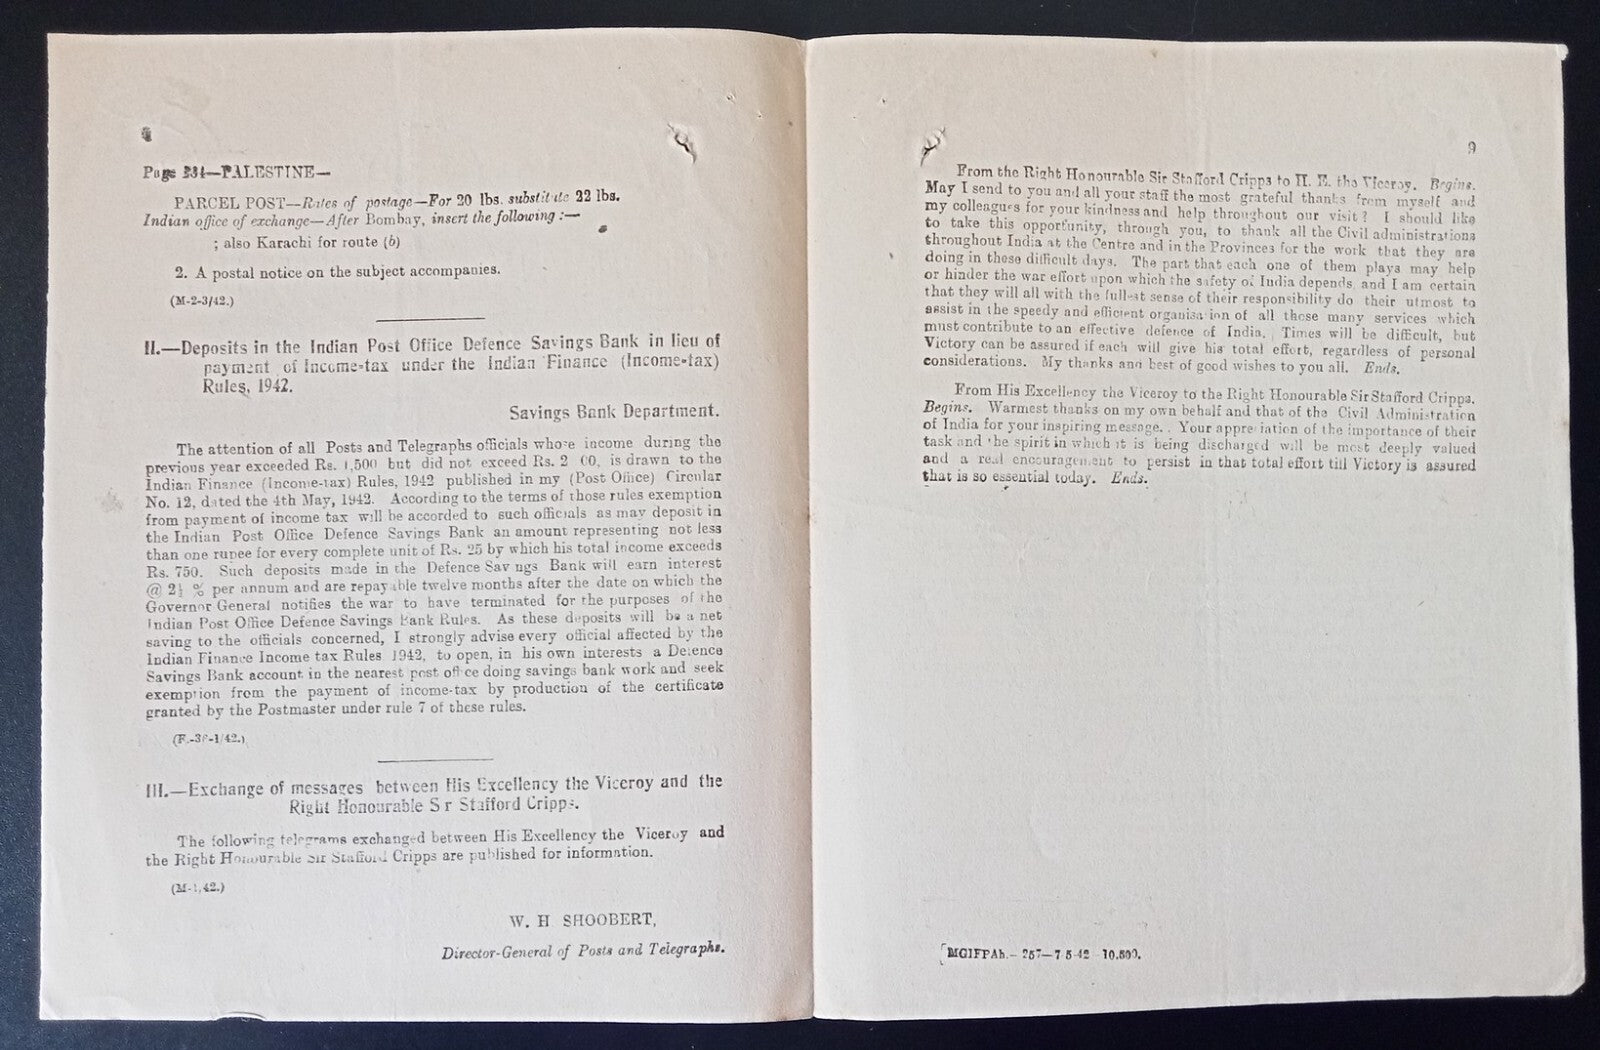 Page 334—PALESTINE—
PARCEL POST—Rates of postage—For 20 lbs. substitute 22 lbs.
Indian office of exchange—After Bombay, insert the following :—
; also Karachi for route (b)
2. A postal notice on the subject accompanies.
(M-2-3/42.)
II.—Deposits in the Indian Post Office Defence Savings Bank in lieu of
payment of Income-tax under the Indian Finance (Income-tax)
Rules, 1942.
Savings Bank Department.
The attention of all Posts and Telegraphs officials whose income during the
previous year exceeded Rs. 1,500 but did not exceed Rs. 2 00, is drawn to the
Indian Finance (Income-tax) Rules, 1942 published in my (Post Office) Circular
No. 12, dated the 4th May, 1942. According to the terms of those rules exemption
from payment of income tax will be accorded to such officials as may deposit in
the Indian Post Office Defence Savings Bank an amount representing not less
than one rupee for every complete unit of Rs. 25 by which his total income exceeds
Rs. 750. Such deposits made in the Defence Sav ngs Bank will earn interest
@ 2½ % per annum and are repayable twelve months after the date on which the
Governor General notifies the war to have terminated for the purposes of the
Indian Post Office Defence Savings Bank Rules. As these deposits will be a net
saving to the officials concerned, I strongly advise every official affected by the
Indian Finance Income tax Rules 1942, to open, in his own interests a Defence
Savings Bank account in the nearest post office doing savings bank work and seek
exemption from the payment of income-tax by production of the certificate
granted by the Postmaster under rule 7 of these rules.
III.—Exchange of messages between His Excellency the Viceroy and the
Right Honourable S r Stafford Cripps.
The following telegrams exchanged between His Excellency the Viceroy and
the Right Honourable Sir Stafford Cripps are published for information.
(M-1,42.)
W. H SHOOBERT,
Director-General of Posts and Telegraphs.
9
From the Right Honourable Sir Stafford Cripps to H. E. the Viceroy. Begins.
May I send to you and all your staff the most grateful thanks from myself and
my colleagues for your kindness and help throughout our visit? I should like
to take this opportunity, through you, to thank all the Civil administrations
throughout India at the Centre and in the Provinces for the work that they are
doing in these difficult days. The part that each one of them plays may help
or hinder the war effort upon which the safety of India depends, and I am certain
that they will all with the fullest sense of their responsibility do their utmost to
assist in the speedy and efficient organisation of all those many services which
must contribute to an effective defence of India. Times will be difficult, but
Victory can be assured if each will give his total effort, regardless of personal
considerations. My thanks and best of good wishes to you all. Ends.
From His Excellency the Viceroy to the Right Honourable Sir Stafford Cripps.
Begins. Warmest thanks on my own behalf and that of the Civil Administration
of India for your inspiring message. Your appreciation of the importance of their
task and the spirit in which it is being discharged will be most deeply valued
and a real encouragement to persist in that total effort till Victory is assured
that is so essential today. Ends.
MGIFPAh.—257—7-5-42—10,500.